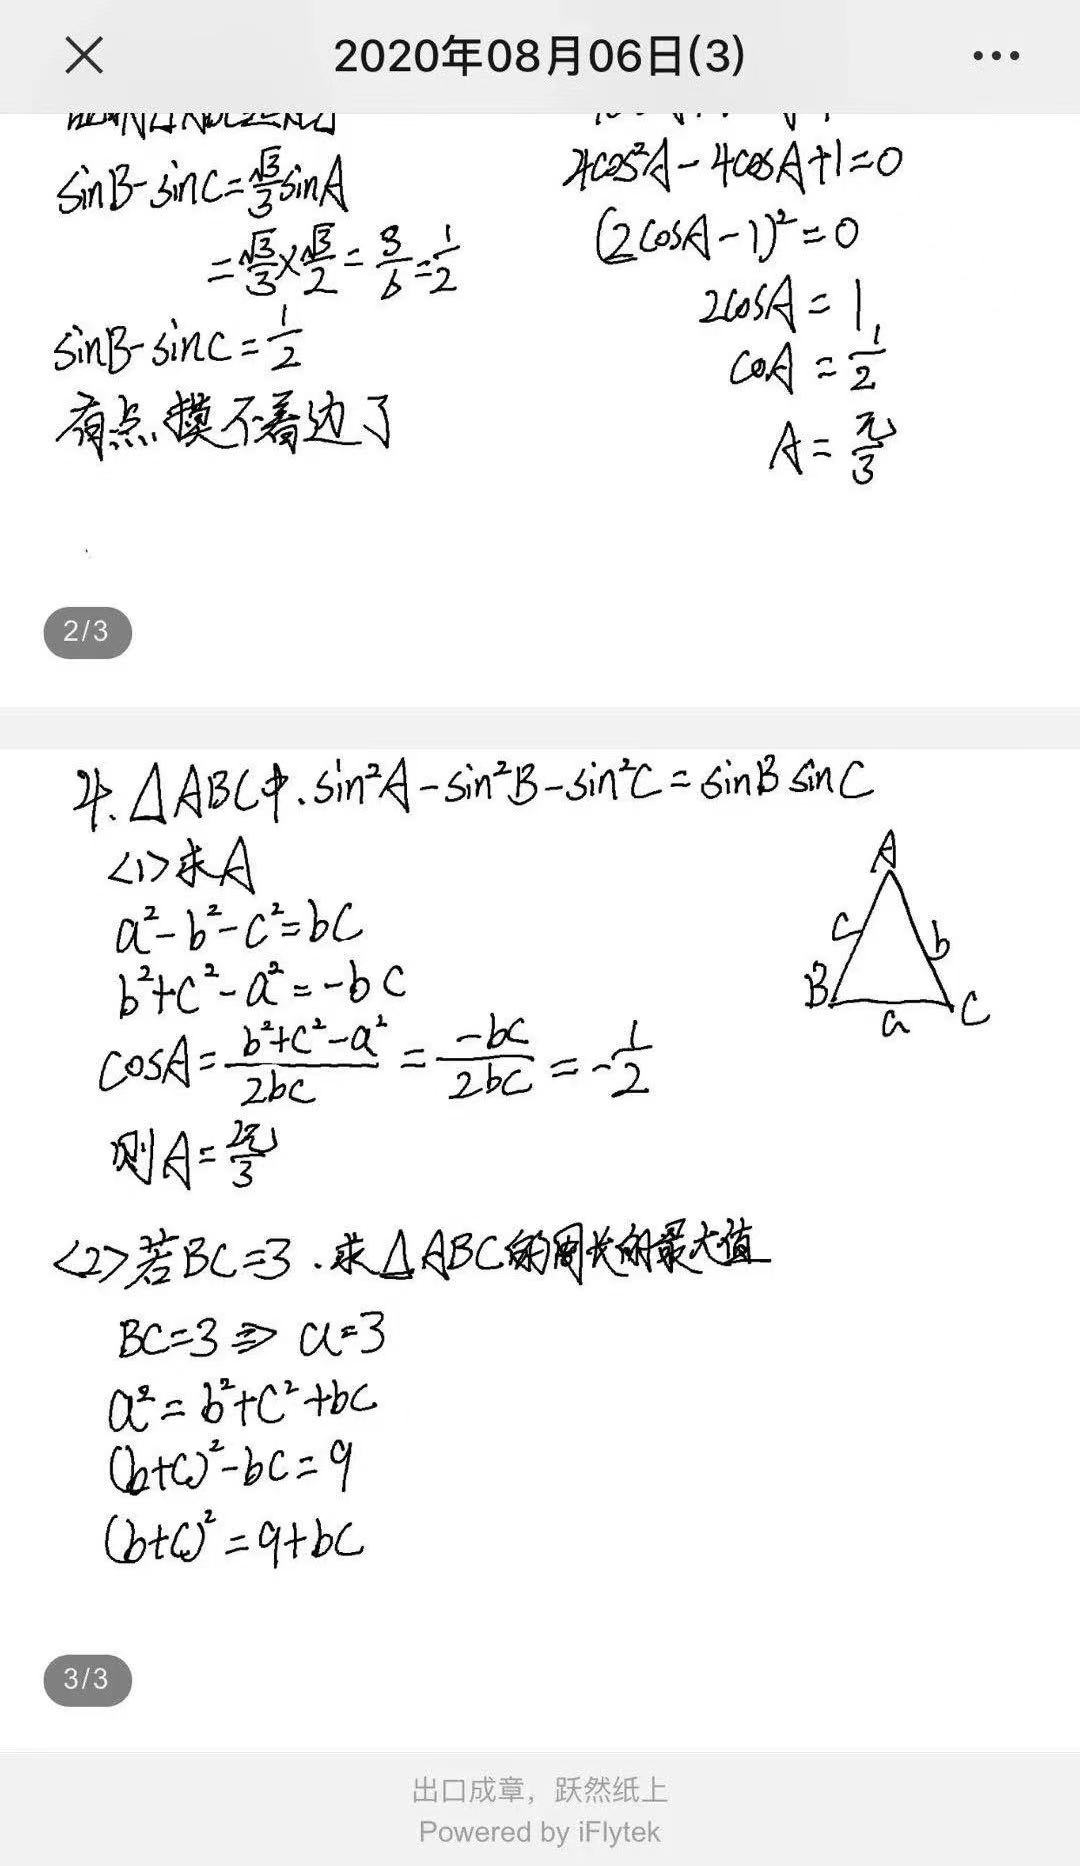 2020年08月06日(3)
sinB-sinC=√3/3 sinA
=√3/3×√3/2=3/6=1/2
sinB-sinC=1/2
有点摸不着边了
4cos²A-4cosA+1=0
(2cosA-1)²=0
2cosA=1,
coA=1/2
A=π/3
2/3
4.△ABC中.sin²A-sin²B-sin²C=sinB sinC
<1>求A
a²-b²-c²=bc
b²+c²-a²=-bc
cosA=b²+c²-a²/2bc=-bc/2bc=-1/2
则A=2π/3
A
c
b
B
a
C
<2>若BC=3.求△ABC的周长的最大值
BC=3⇒a=3
a²=b²+c²+bc
(b+c)²-bc=9
(b+c)²=9+bc
3/3
出口成章，跃然纸上
Powered by iFlytek